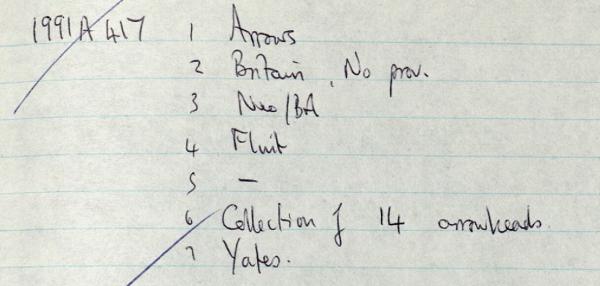 1991A 417 1 Arrows
2 Britain, No prov.
3 Neo/BA
4 Flint
5 —
6 Collection of 14 arrowheads.
7 Yates.